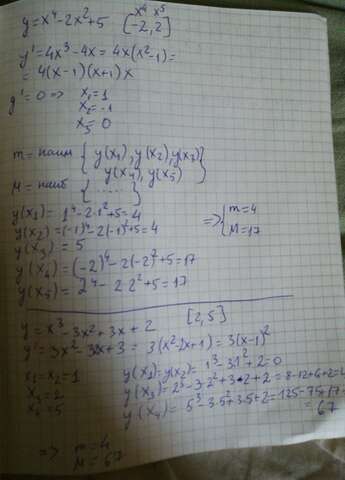 x⁴ x⁵
y = x⁴ - 2x² + 5 [-2, 2]
y' = 4x³ - 4x = 4x(x² - 1) =
= 4(x-1)(x+1)x
y' = 0 => x₁ = 1
x₂ = -1
x₃ = 0
m = наим { y(x₁), y(x₂), y(x₃)
y(x₄), y(x₅) }
M = наиб { ...... }
y(x₁) = 1⁴ - 2·1² + 5 = 4
y(x₂) = (-1)⁴ - 2(-1)² + 5 = 4 => { m = 4
y(x₃) = 5 M = 17
y(x₄) = (-2)⁴ - 2(-2)² + 5 = 17
y(x₅) = 2⁴ - 2·2² + 5 = 17
y = x³ - 3x² + 3x + 2 [2, 5]
y' = 3x² - 3x + 3 = 3(x² - 2x + 1) = 3(x-1)²
x₁ = x₂ = 1 y(x₁) = y(x₂) = 1³ - 3·1² + 2 = 0
x₃ = 2 y(x₃) = 2³ - 3·2² + 3·2 + 2 = 8 - 12 + 6 + 2 =
x₄ = 5 y(x₄) = 5³ - 3·5² + 3·5 + 2 = 125 - 75 + 17 =
= 67
=> m = 4
M = 67